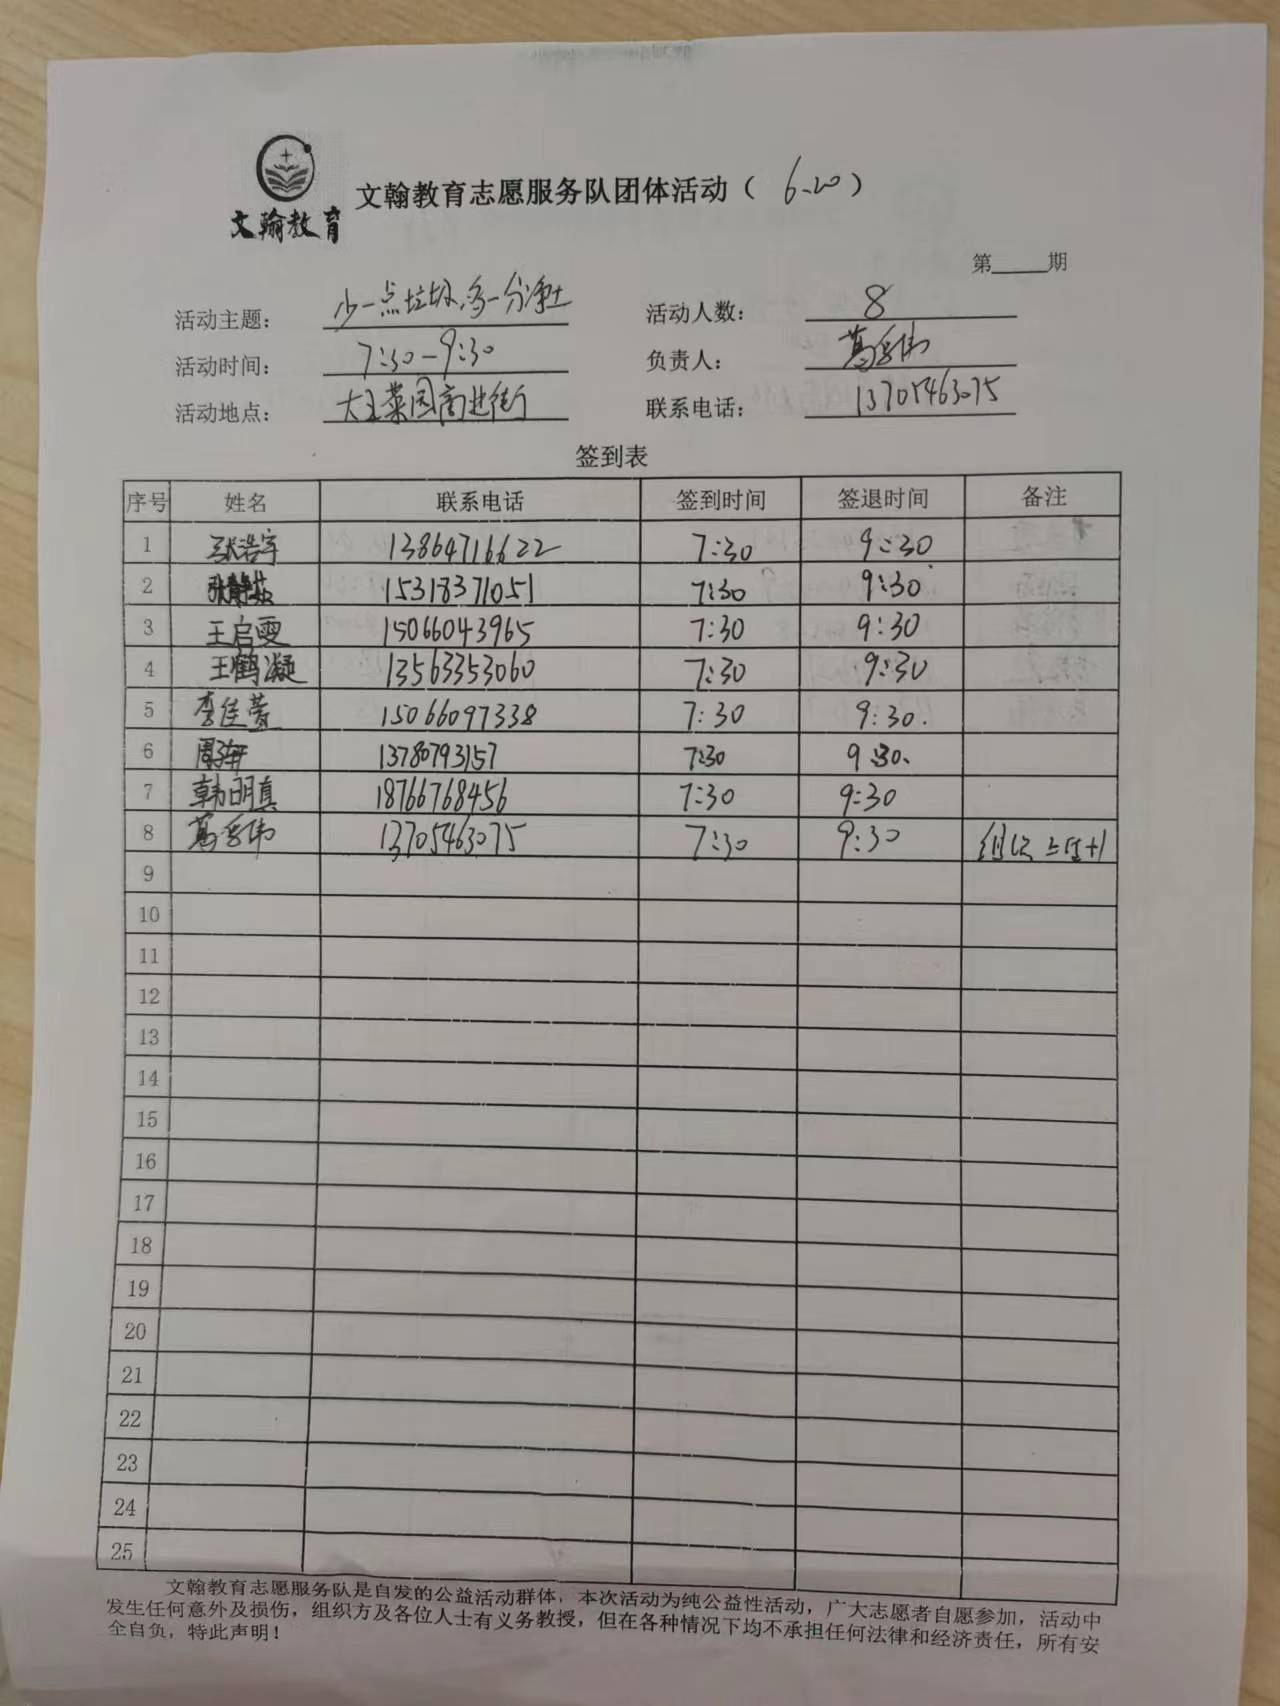 文翰教育
文翰教育志愿服务队团体活动（ 6.20 ）
第____期
活动主题： 少一点垃圾,多一分净土 活动人数： 8
活动时间： 7:30-9:30 负责人： 葛学伟
活动地点： 大王菜园商业街 联系电话： 13705463075
签到表
序号 姓名 联系电话 签到时间 签退时间 备注
1 张浩宇 13864716622 7:30 9:30
2 15318371051 7:30 9:30
3 王启雯 15066043965 7:30 9:30
4 王鹤凝 13563353060 7:30 9:30
5 李佳萱 15066097338 7:30 9:30.
6 13780793157 7:30 9:30.
7 韩明真 18766768456 7:30 9:30
8 葛学伟 13705463075 7:30 9:30 +1
9
10
11
12
13
14
15
16
17
18
19
20
21
22
23
24
25
文翰教育志愿服务队是自发的公益活动群体，本次活动为纯公益性活动，广大志愿者自愿参加，活动中
发生任何意外及损伤，组织方及各位人士有义务教授，但在各种情况下均不承担任何法律和经济责任，所有安
全自负，特此声明！